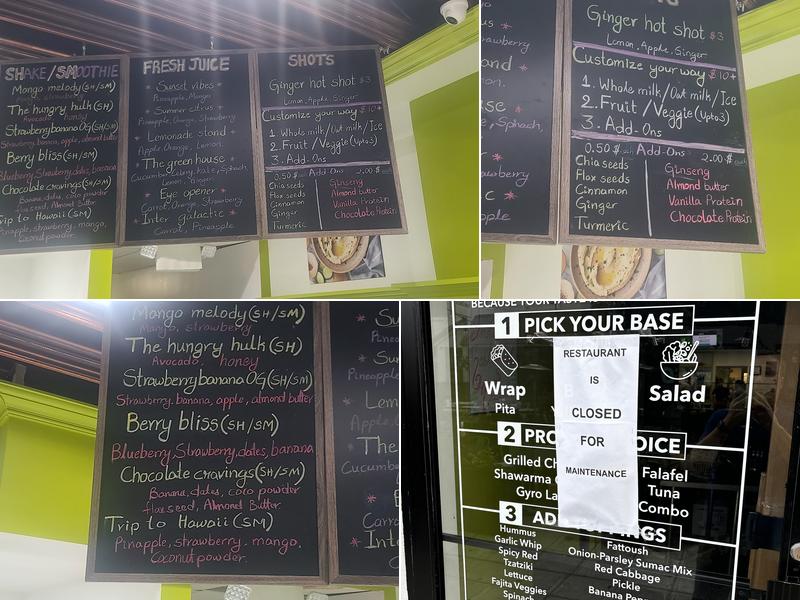 SHAKE/SMOOTHIE
Mango melody (SH/SM)
Mango, strawberry
The hungry hulk (SH)
Avocado honey
Strawberry banana OG (SH/SM)
Strawberry, banana, apple, almond butter
Berry bliss (SH/SM)
Blueberry, Strawberry, dates, banana
Chocolate cravings (SH/SM)
Banana, dates, coco powder
flax seed, Almond Butter
Trip to Hawaii (SM)
Pineapple, strawberry, mango,
Coconut powder.
FRESH JUICE
* Sunset vibes *
Pineapple, Mango
* Summer citrus *
Pineapple, Orange, Strawberry
* Lemonade stand *
Apple, Orange, Lemon.
* The green house *
Cucumber, Celery, Kale, Spinach,
Lemon, Ginger
* Eye opener *
Carrot, Orange, Strawberry
* Inter galactic *
Carrot, Pineapple
SHOTS
Ginger hot shot $3
Lemon, Apple, Ginger
Customize your way £10+
1. Whole milk/Oat milk/Ice
2. Fruit/Veggie (Upto 3)
3. Add-Ons
0.50 $ Add-Ons 2.00 $
Chia seeds
Flax seeds
Cinnamon
Ginger
Turmeric
Ginseng
Almond butter
Vanilla Protein
Chocolate Protein
Ginger hot shot $3
Lemon, Apple, Ginger
Customize your way £10+
1. Whole milk/Oat milk/Ice
2. Fruit/Veggie (Upto 3)
3. Add-Ons
0.50 $ Add-Ons 2.00 $
Chia seeds
Flax seeds
Cinnamon
Ginger
Turmeric
Ginseng
Almond butter
Vanilla Protein
Chocolate Protein
Mango melody (SH/SM)
Mango, strawberry
The hungry hulk (SH)
Avocado, honey
Strawberry banana OG (SH/SM)
Strawberry, banana, apple, almond butter
Berry bliss (SH/SM)
Blueberry, Strawberry, dates, banana
Chocolate cravings (SH/SM)
Banana, dates, coco powder
flax seed, Almond Butter
Trip to Hawaii (SM)
Pinapple, strawberry, mango,
Coconut powder.
BECAUSE YOUR
1 PICK YOUR BASE
Wrap
Pita
Salad
RESTAURANT
IS
CLOSED
FOR
MAINTENANCE
2
Grilled
Shawarma
Gyro
Falafel
Tuna
Combo
3
Hummus
Garlic Whip
Spicy Red
Tzatziki
Lettuce
Fajita Veggies
Spinach
Fattoush
Onion-Parsley Sumac Mix
Red Cabbage
Pickle
Banana